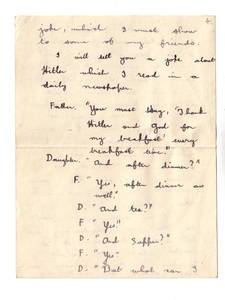 4
joke, which I must show
to some of my friends.
I will tell you a joke about
Hitler which I read in a
daily newspaper.
Father. "You must say, 'Thank
Hitler and God for
my breakfast' every
breakfast time."
Daughter. "And after dinner?"
F. "Yes, after dinner as
well."
D. "And tea?"
F "Yes"
D. "And Supper?"
F "Yes"
D. "But what can I